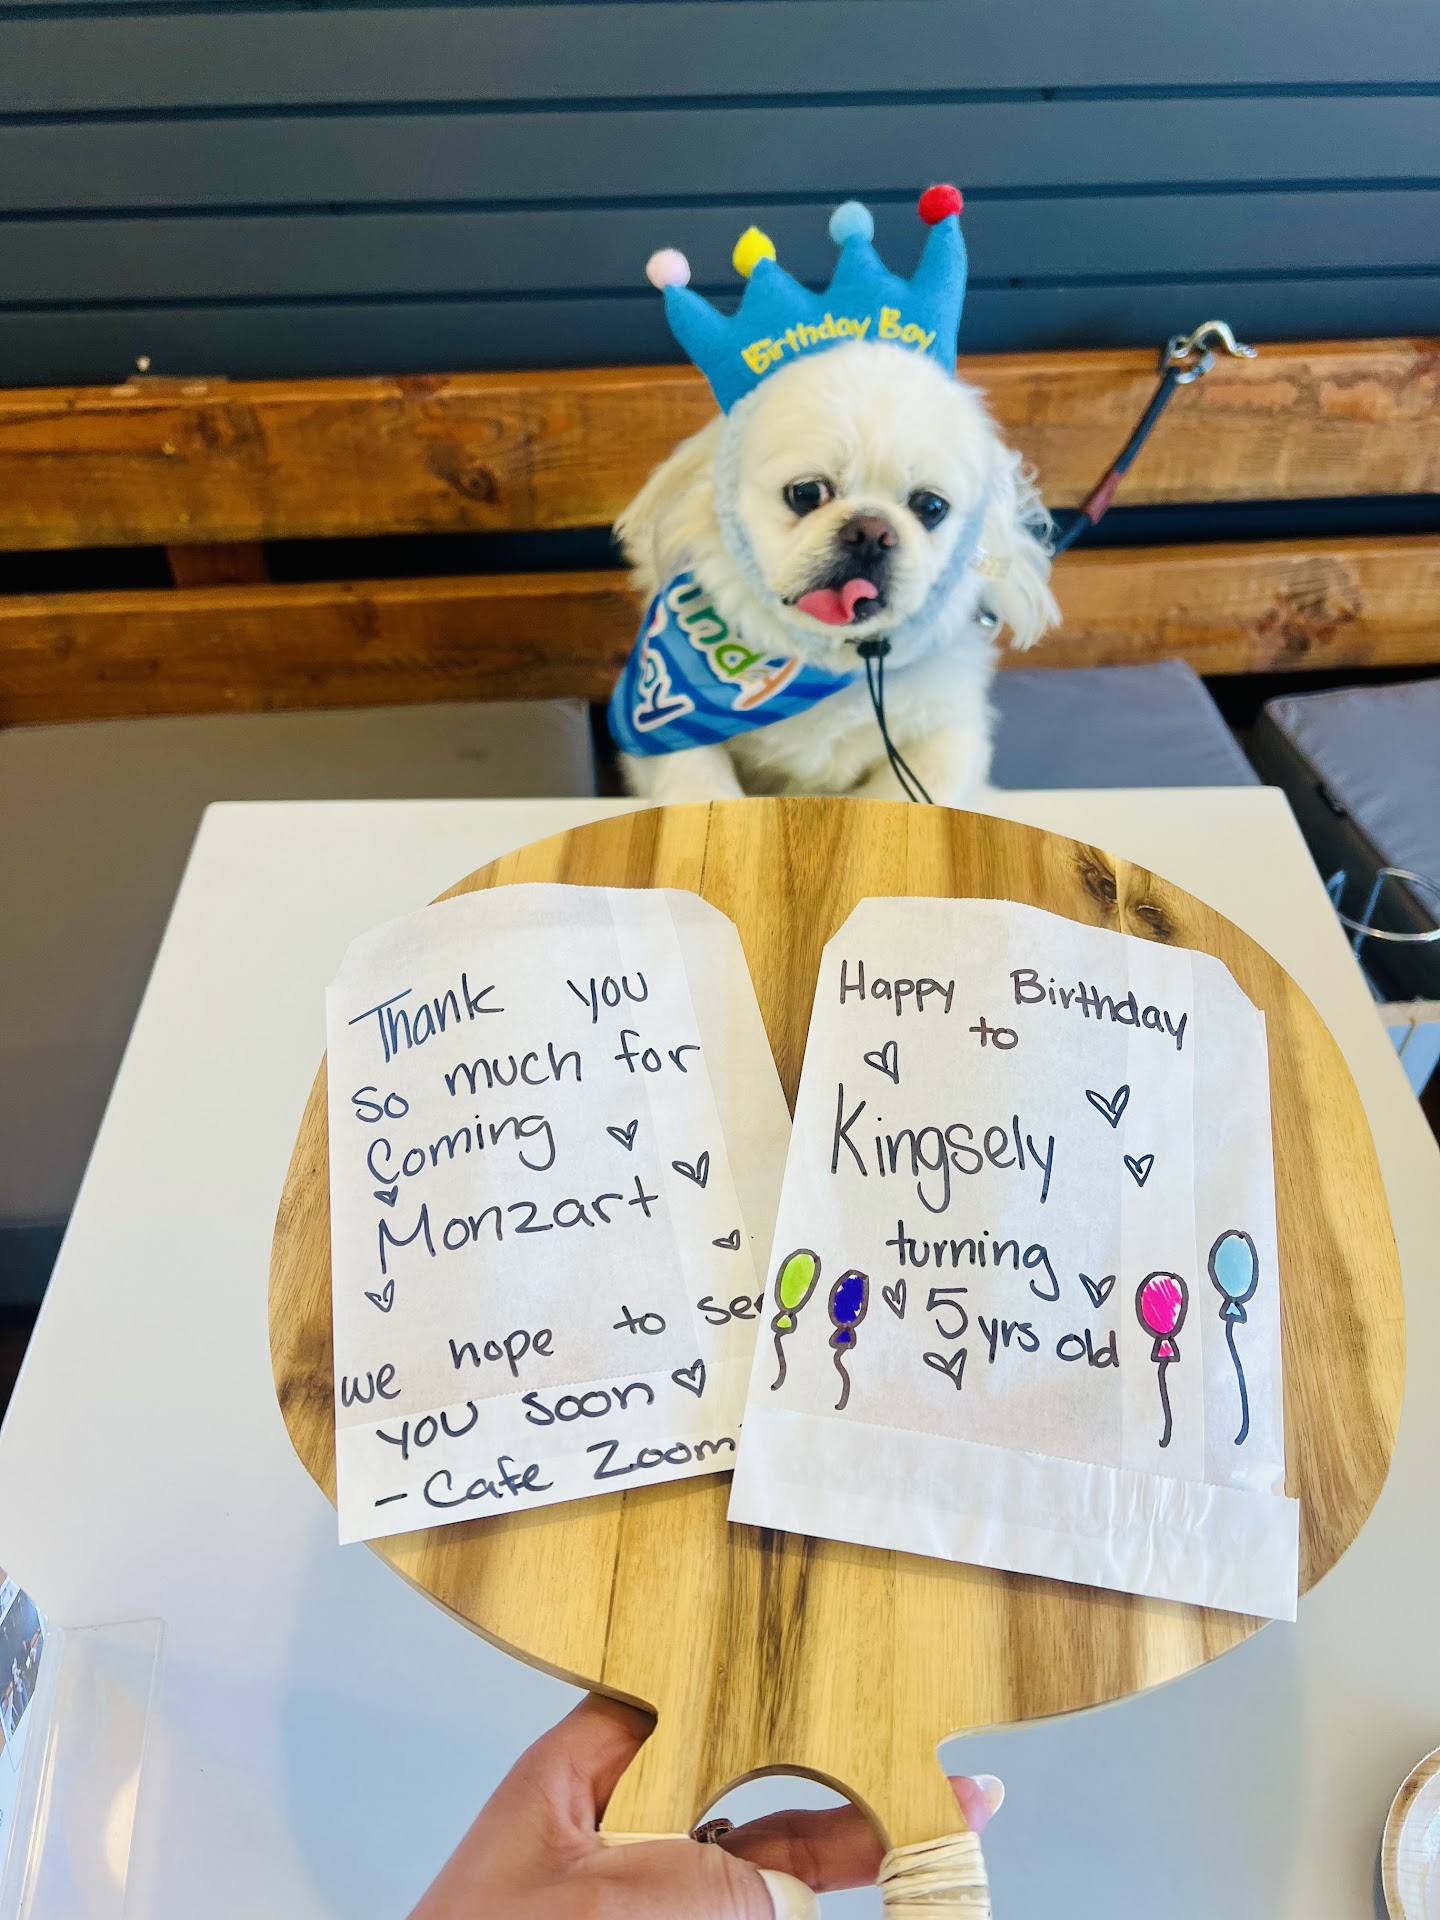 Birthday Boy
Thank you
so much for
Coming
Monzart
we hope to see
you soon
- Cafe Zoom
Happy Birthday
to
Kingsely
turning
5 yrs old